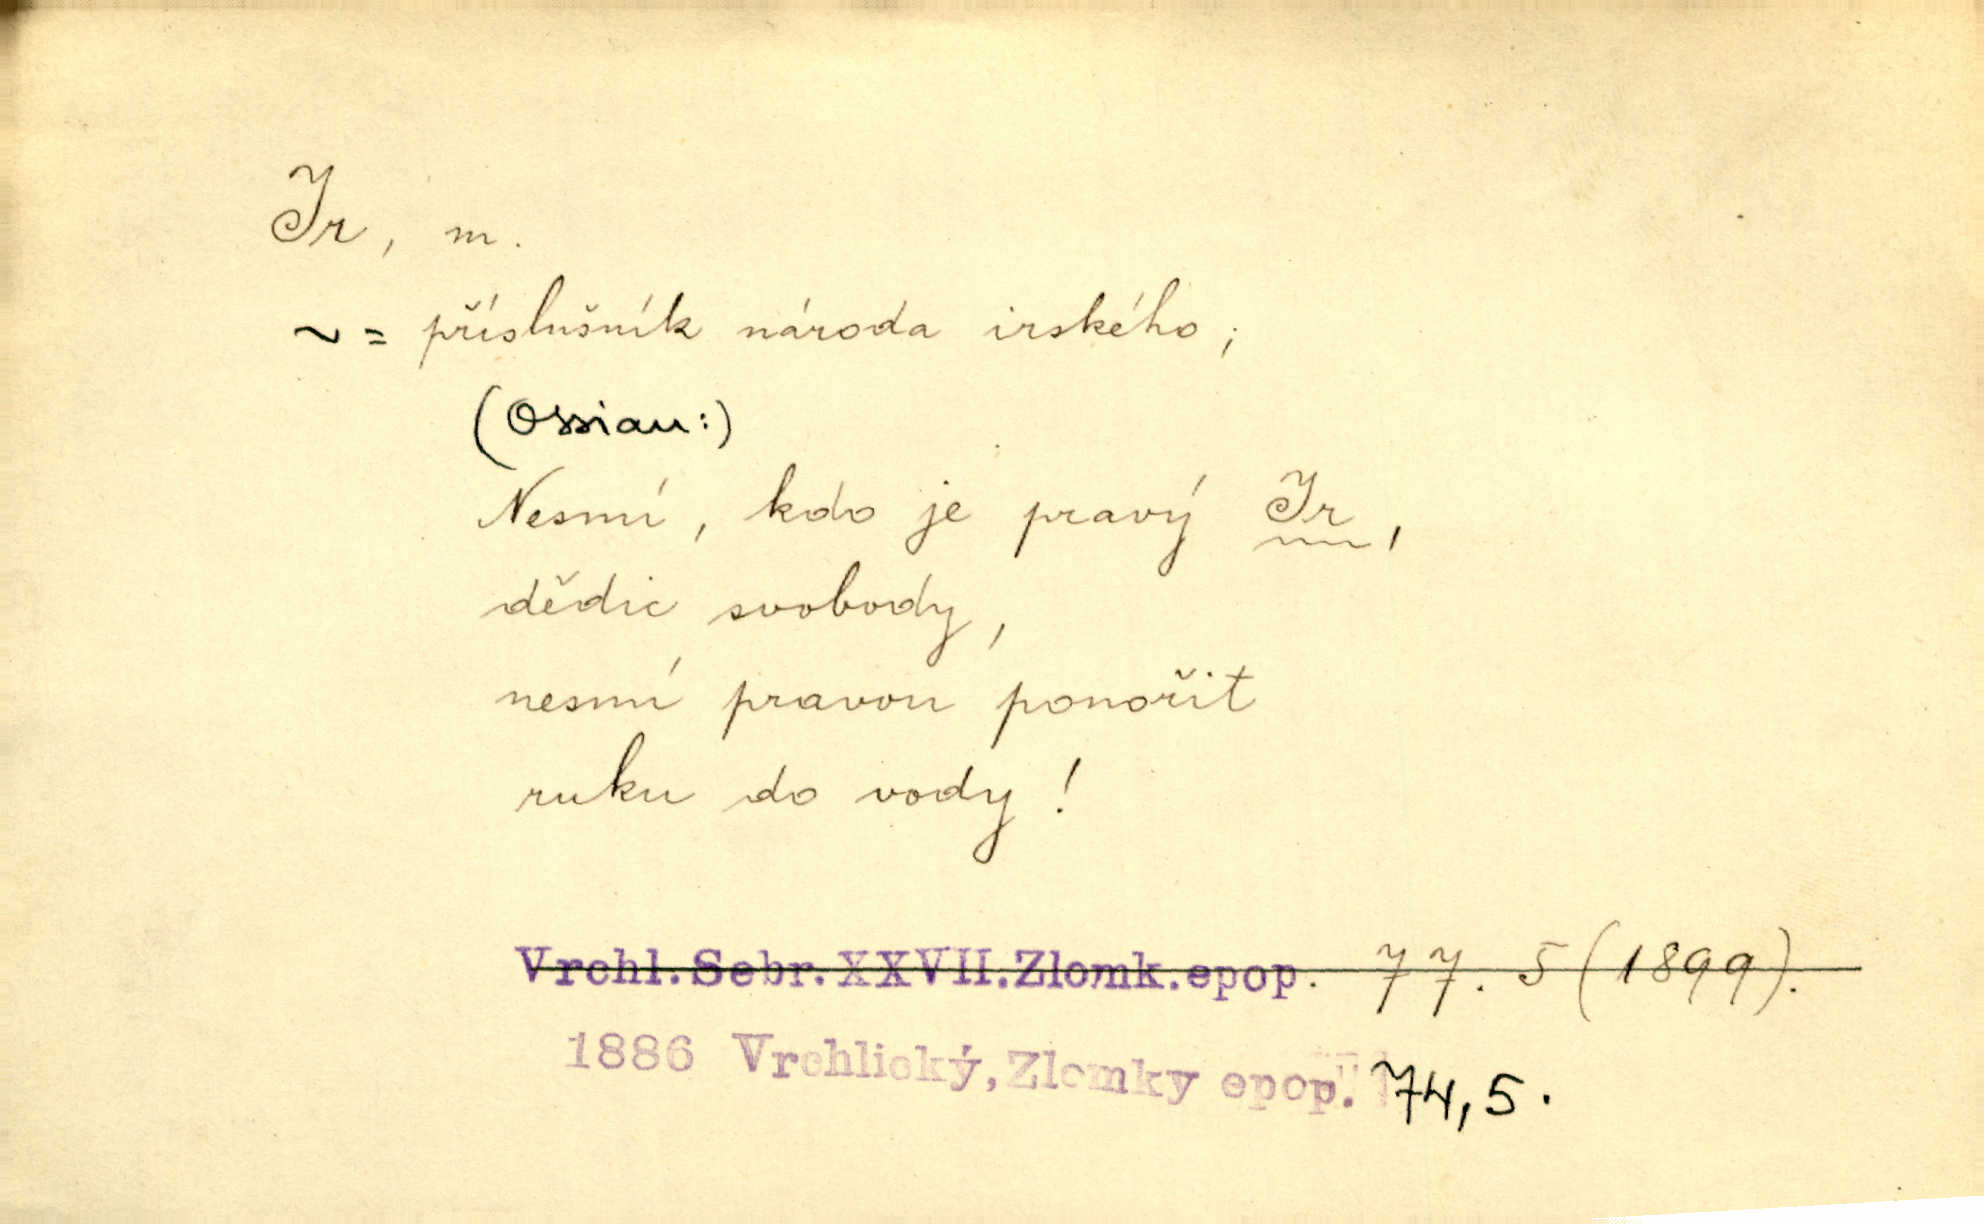 Ir, m.
~ = příslušník národa irského;
(Ossian:)
Nesmí, kdo je pravý Ir,
dědic svobody,
nesmí pravou ponořit
ruku do vody!
Vrchl. Sebr. XXVII. Zlomk. epop. 77. 5 (1899).
1886 Vrchlický, Zlomky epop. 74, 5.